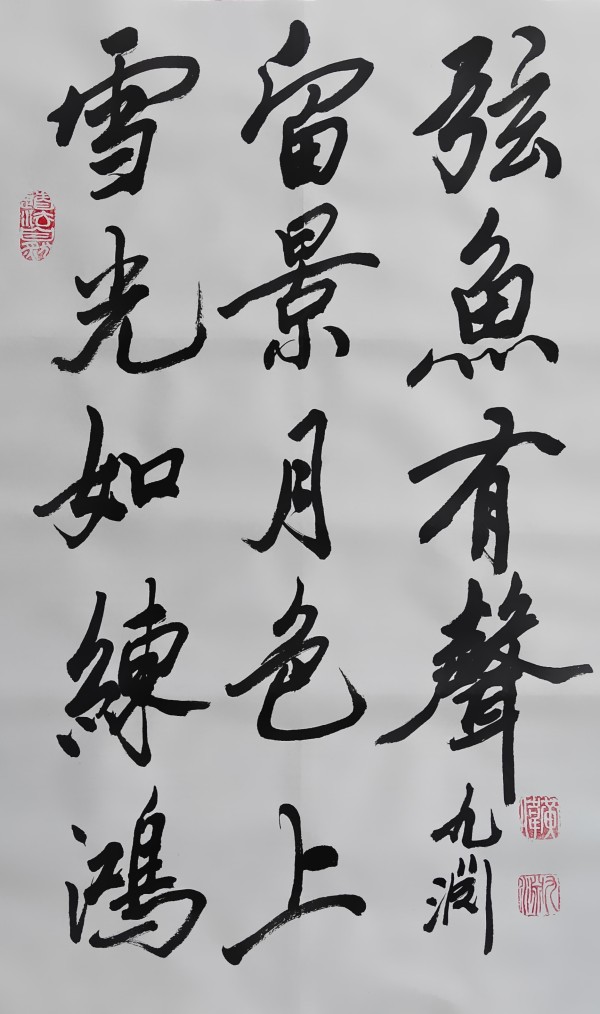 雪光如練鴻
留景月色上
弦魚有聲
九淵
黄偉
九淵